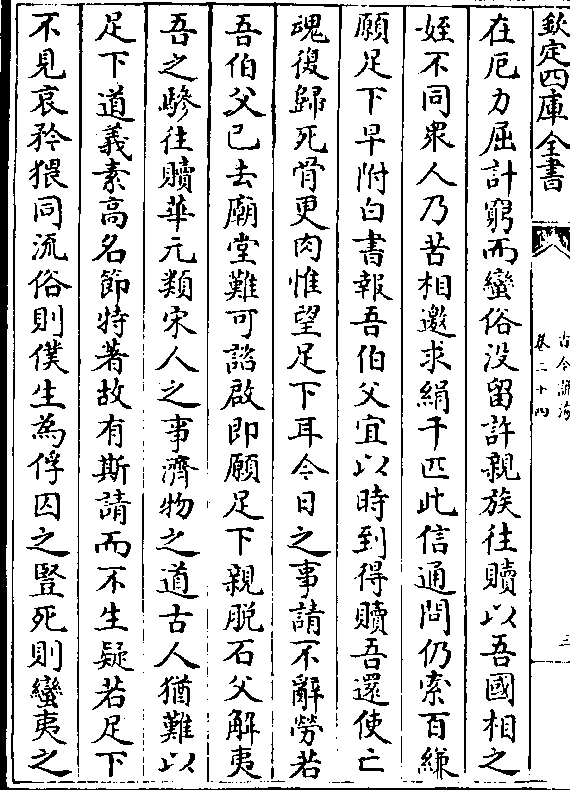 欽定四庫全書
古今說海
卷二十四
三
在厄力屈計窮而蠻俗没留許親族往贖以吾國相之
姪不同衆人乃苦相邀求絹千匹此信通問仍索百縑
願足下早附白書報吾伯父宜以時到得贖吾還使亡
魂復歸死骨更肉惟望足下耳今日之事請不辭勞若
吾伯父已去廟堂難可諮啟即願足下親脱石父解夷
吾之驂往贖華元類宋人之事濟物之道古人猶難以
足下道義素高名節特著故有斯請而不生疑若足下
不見哀矜猥同流俗則僕生為俘囚之豎死則蠻夷之